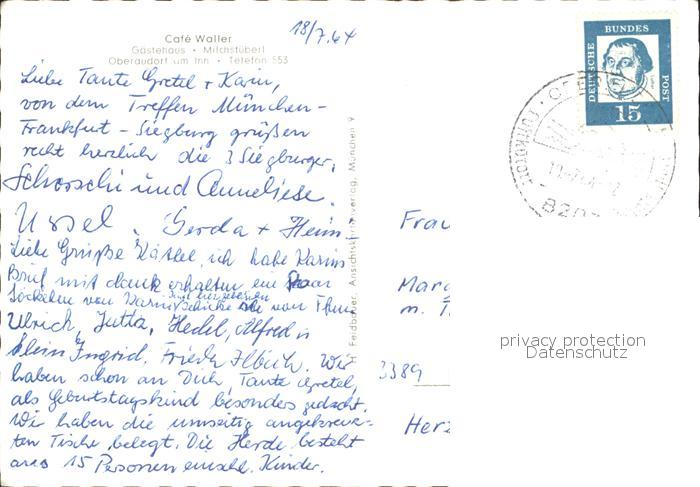 Café Waller
Gästehaus • Milchstüberl
Oberaudorf am Inn • Telefon 553
18/7.64
Liebe Tante Gretel + Karin,
von dem Treffen München-
Frankfurt - Siegburg grüßen
recht herzlich die 3 Siegburger,
Schorschi und Anneliese.
Ursel. Gerda + Heini
Liebe Grüße Käthel, ich habe Karins
Brief mit dank erhalten ein Paar
Söckchen von Karin von Ihnen
Ulrich, Jutta, Hedel, Alfred u
klein Ingrid. Frieda Wir
haben schon an Dich, Tante Gretel,
als Geburtstagskind besonders gedacht.
Wir haben die umseitig angekreuz-
ten Tische belegt. Die Herde besteht
aus 15 Personen einschl. Kinder.
H. Feldbauer, Ansichtskartenverlag, München 9
DEUTSCHE
BUNDES
POST
15
8203
Frau
Marg
m. T
3389
Herz
privacy protection
Datenschutz